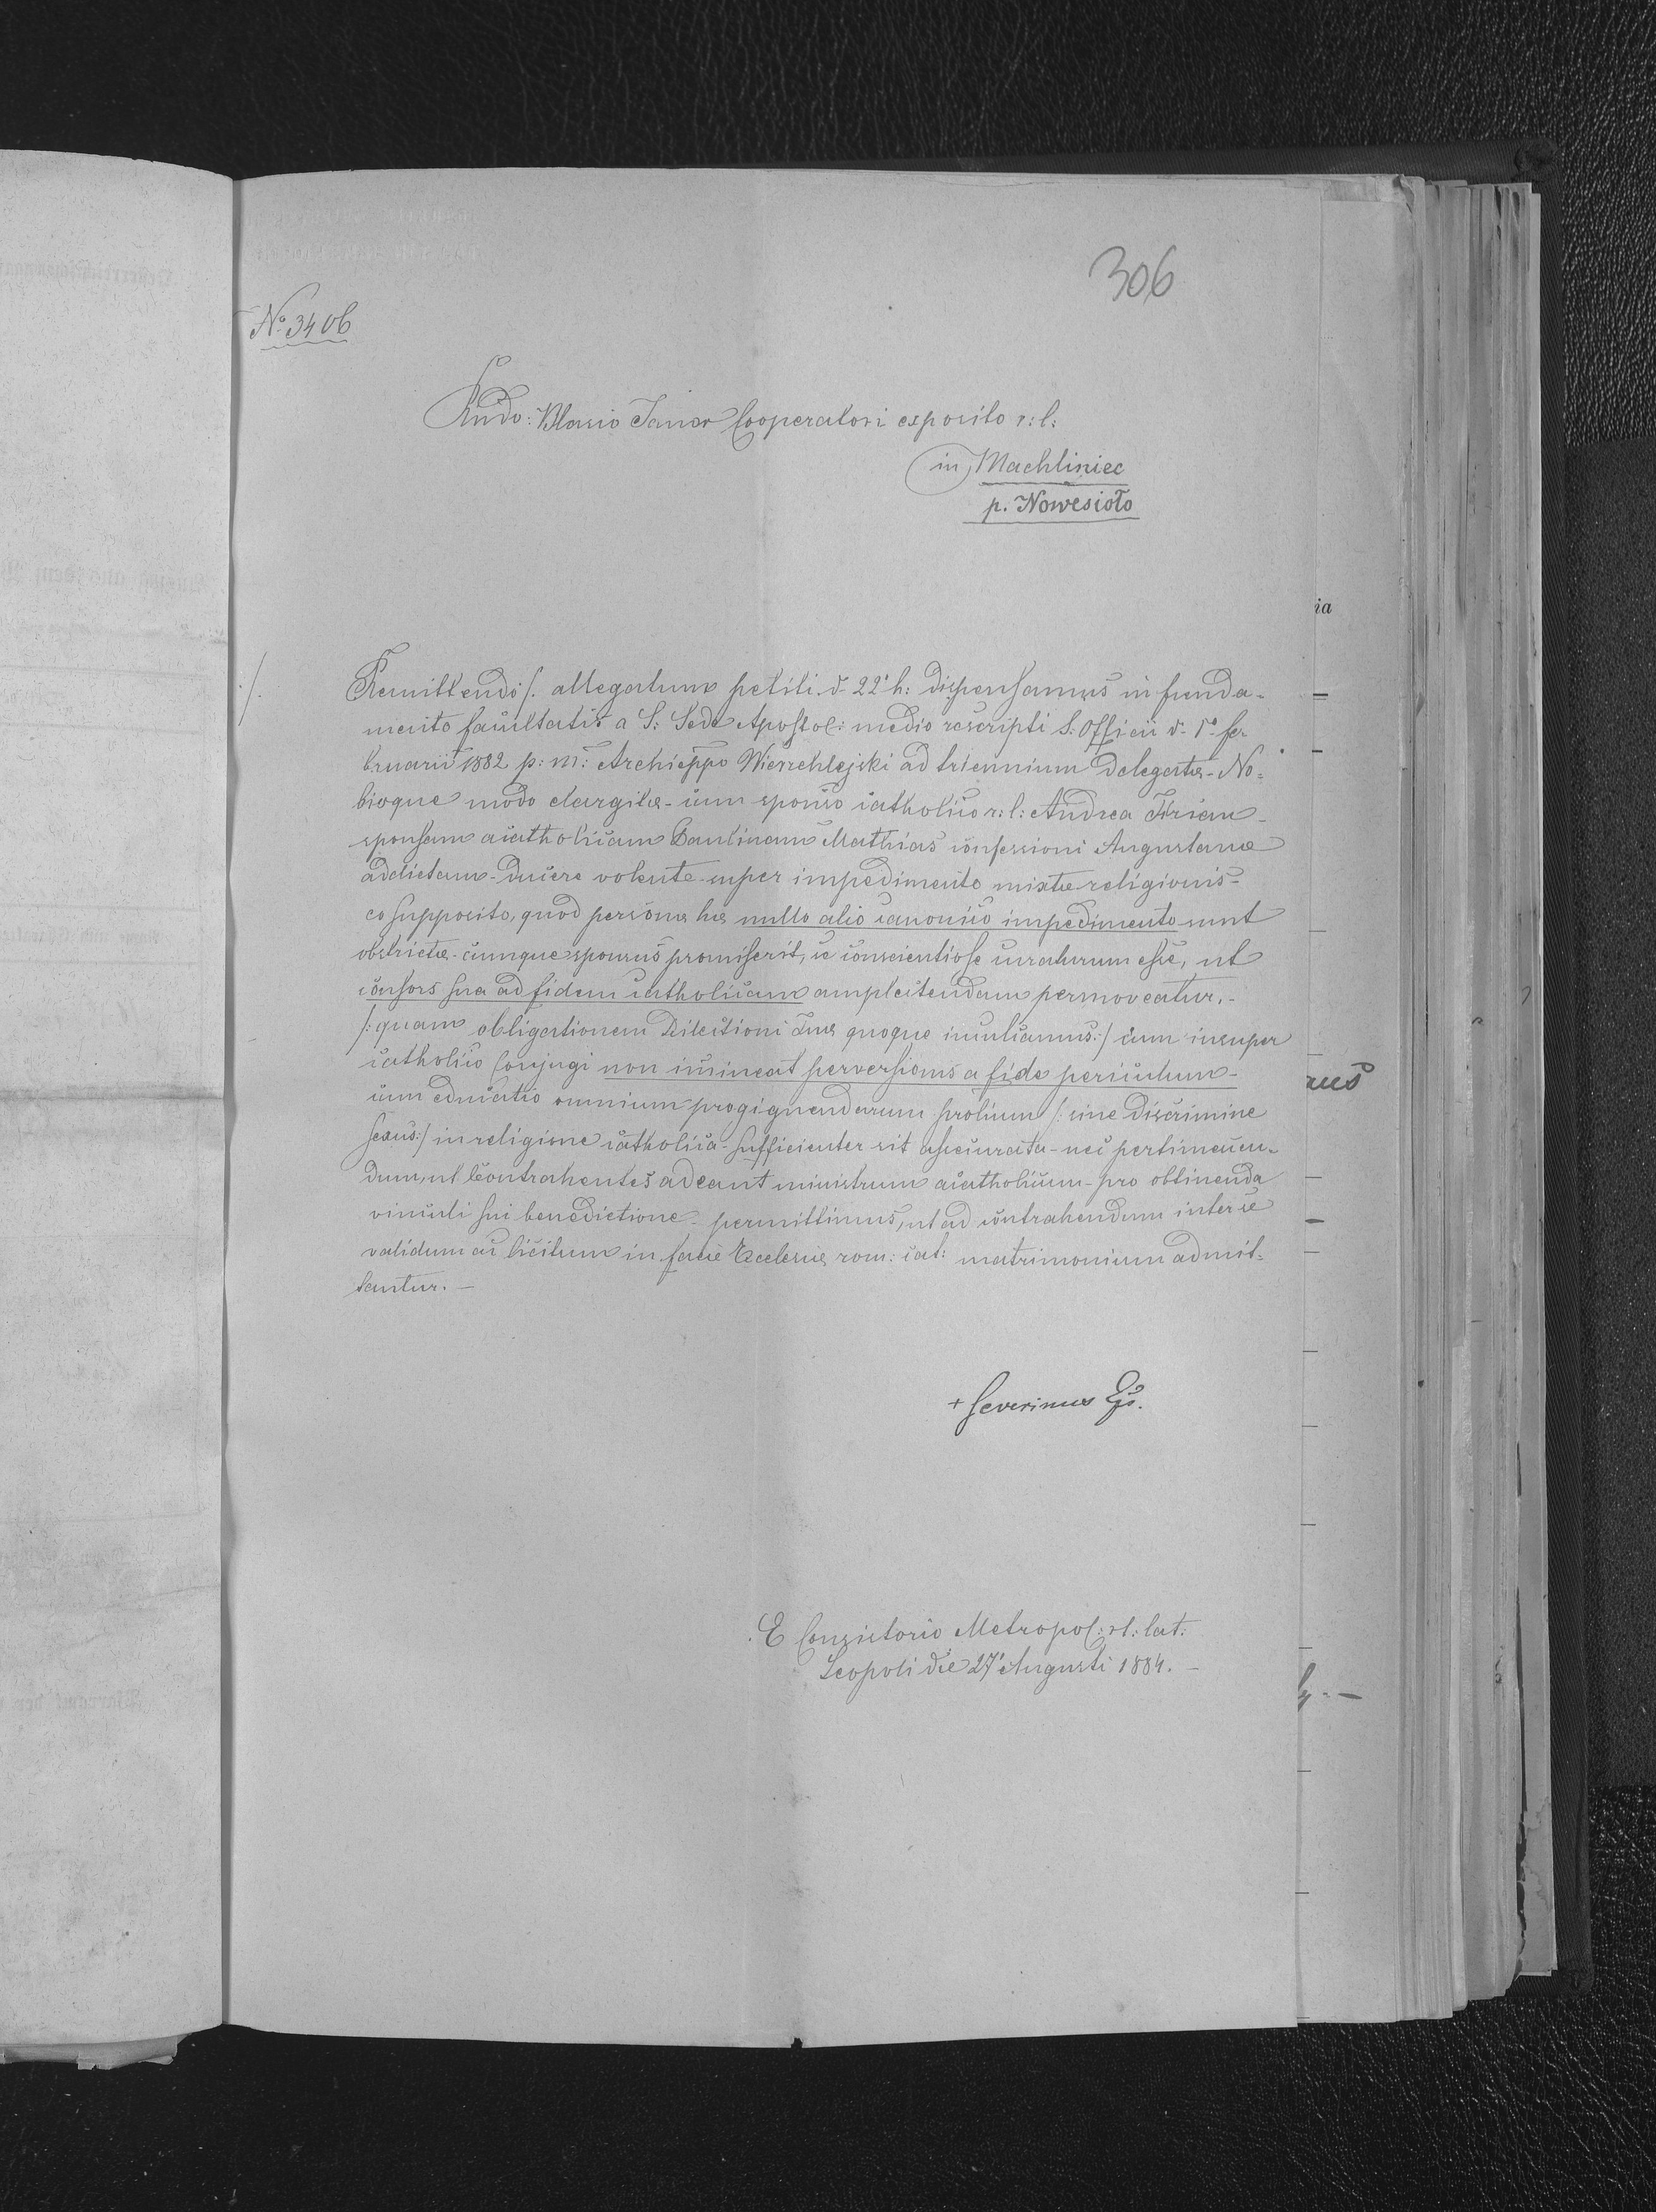 306
№ 3406
Rndo: Blasio Janor Cooperatori exposito r: l:
in Machliniec
p. Nowesioło
ia
./. Remittendo /. allegatum petiti. d. 22' h: dispensamus in funda-
mento facultatis a S: Sede Apostol: medio rescripti S: Officii d. 1° fe-
bruarii 1882 p: m: Archieppo Wierzchlejski ad triennium delegatæ - No-
bisque modo elargitæ - cum sponso catholico r: l: Andrea
sponsam acatholicam Paulinam Mathias confessioni Augustanæ
addictam - ducere volente - super impedimento mixtæ religionis -
eo supposito, quod personæ hæ nullo alio canonico impedimento sunt
obstrictæ - cumque sponsus promiserit, se conscientiose curaturum esse, ut
consors sua ad fidem catholicam amplectendam permoveatur, -
/: quam obligationem Dilectioni Tuæ quoque inculcamus :/ cum insuper
catholico Conjugi non imineat perversionis a fide periculum -
cum educatio omnium progignendarum prolium /: sine discrimine
sexus :/ in religione catholica - sufficienter sit assecurata - nec pertimescen-
dum, ut Contrahentes adeant ministrum acatholicum - pro obtinenda
vinculi sui benedictione - permittimus, ut ad contrahendum inter se
validum ac licitum in facie Ecclesiæ rom: cat: matrimonium admit-
tantur. -
aus
+ Severinus Eps.
E Consistorio Metropol: rl: lat:
Leopoli die 27' Augusti 1884. -